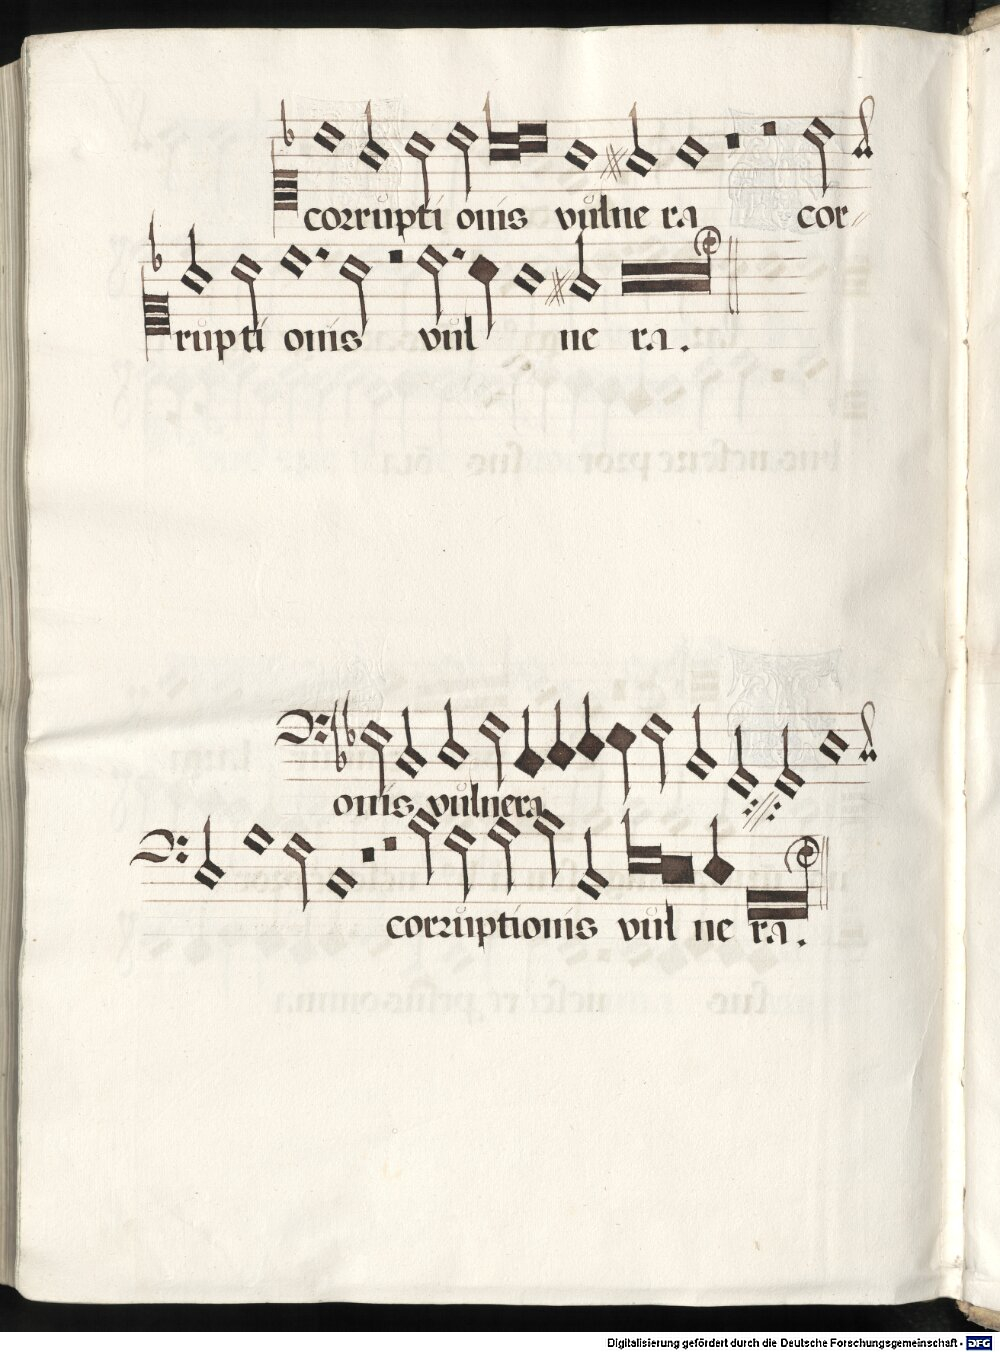 corrupti onis vulne ra cor
rupti onis vul ne ra.
onis vulnera
corruptionis vul ne ra.
Digitalisierung gefördert durch die Deutsche Forschungsgemeinschaft - DFG